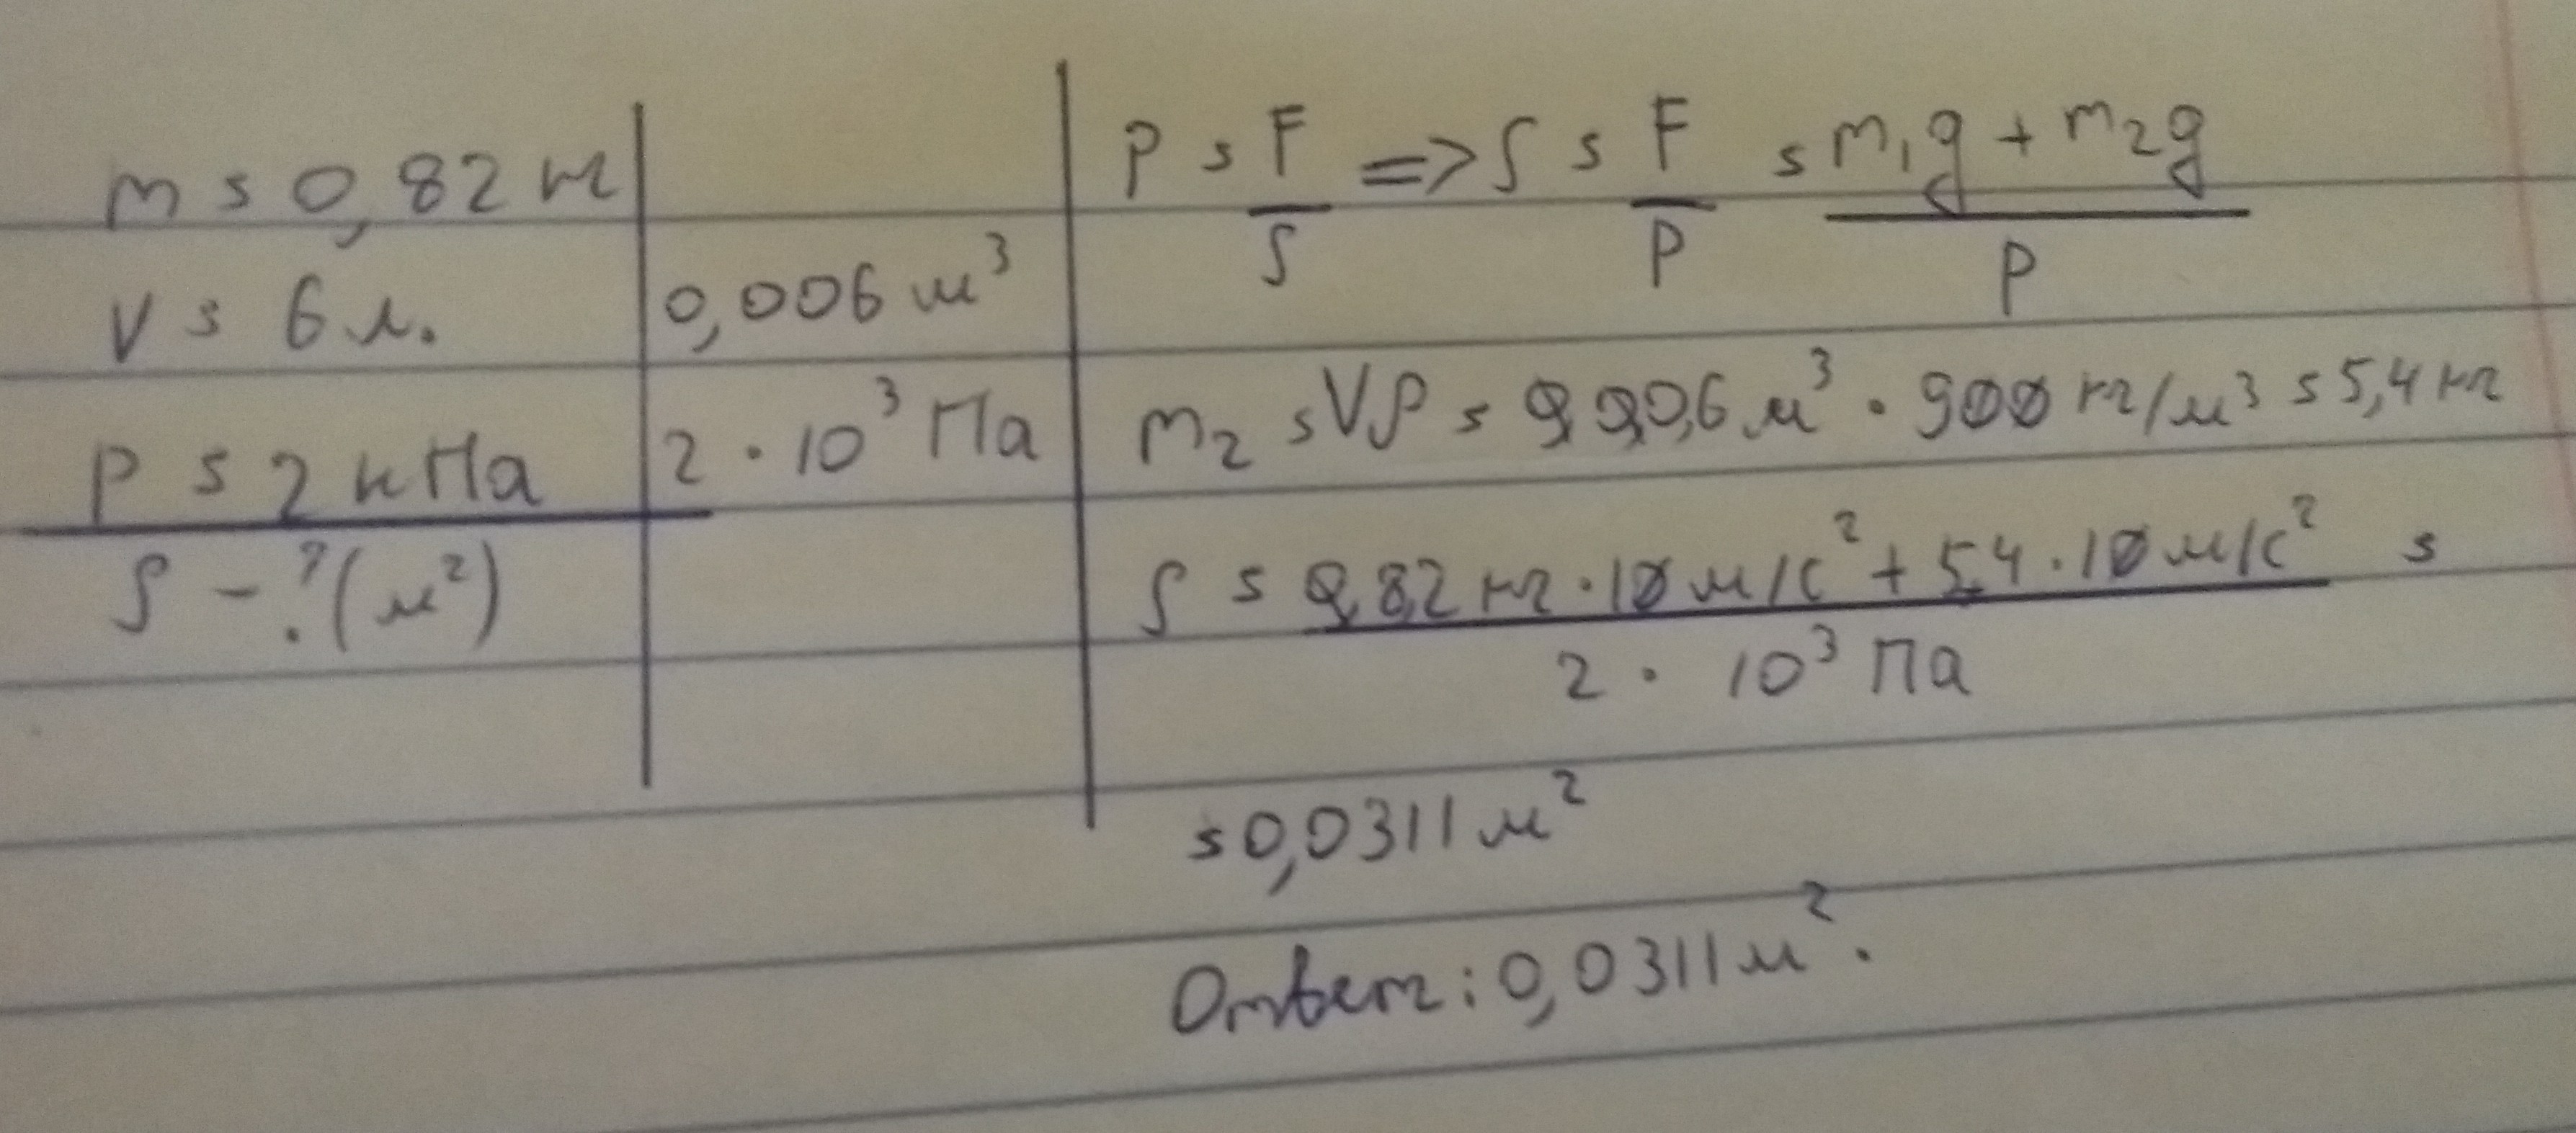 m = 0,82 кг
V = 6 л.
0,006 м³
P = 2 кПа
2 · 10³ Па
S - ? (м²)
P = F/S => S = F/P = (m₁g + m₂g)/P
m₂ = Vρ = 0,006 м³ · 900 кг/м³ = 5,4 кг
S = (0,82 кг · 10 м/с² + 5,4 · 10 м/с²)/(2 · 10³ Па) =
= 0,0311 м²
Ответ: 0,0311 м².